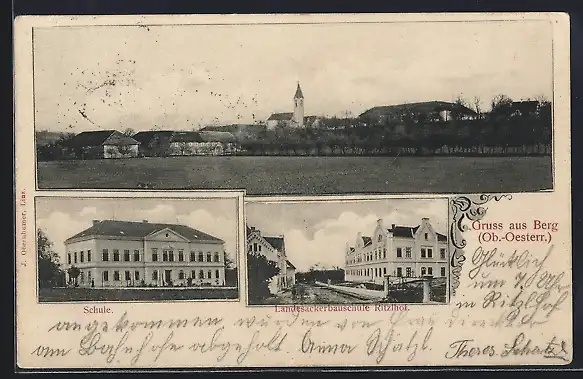 Gruss aus Berg
(Ob.-Oesterr.)
Glücklich
um 7 Uhr
in Ritzlhof
Schule.
Landesackerbauschule Ritzlhof.
angekommen wurden von Frau direktor
am Bahnhof abgeholt Anna Schatzl.
Theres Schatzl
J. Obernhumer, Linz.